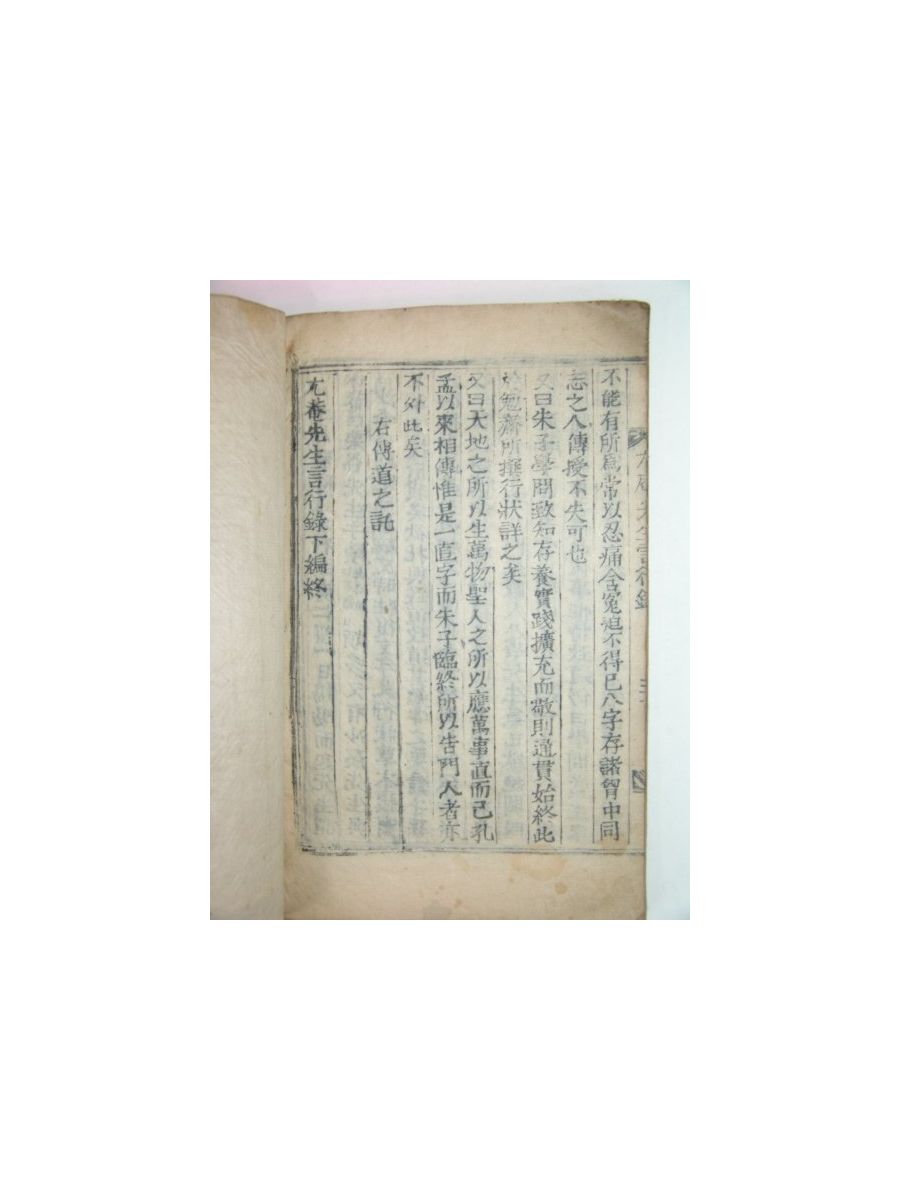 不能有所爲常以忍痛含寃迫不得已八字存諸胷中同
志之人傳授不失可也
又曰朱子學問致知存養實踐擴充而敬則通貫始終此
勉齋所撰行狀詳之矣
又曰天地之所以生萬物聖人之所以應萬事直而已孔
孟以來相傳惟是一直字而朱子臨終所以告門人者亦
不外此矣
右傳道之託
尤菴先生言行錄下編終